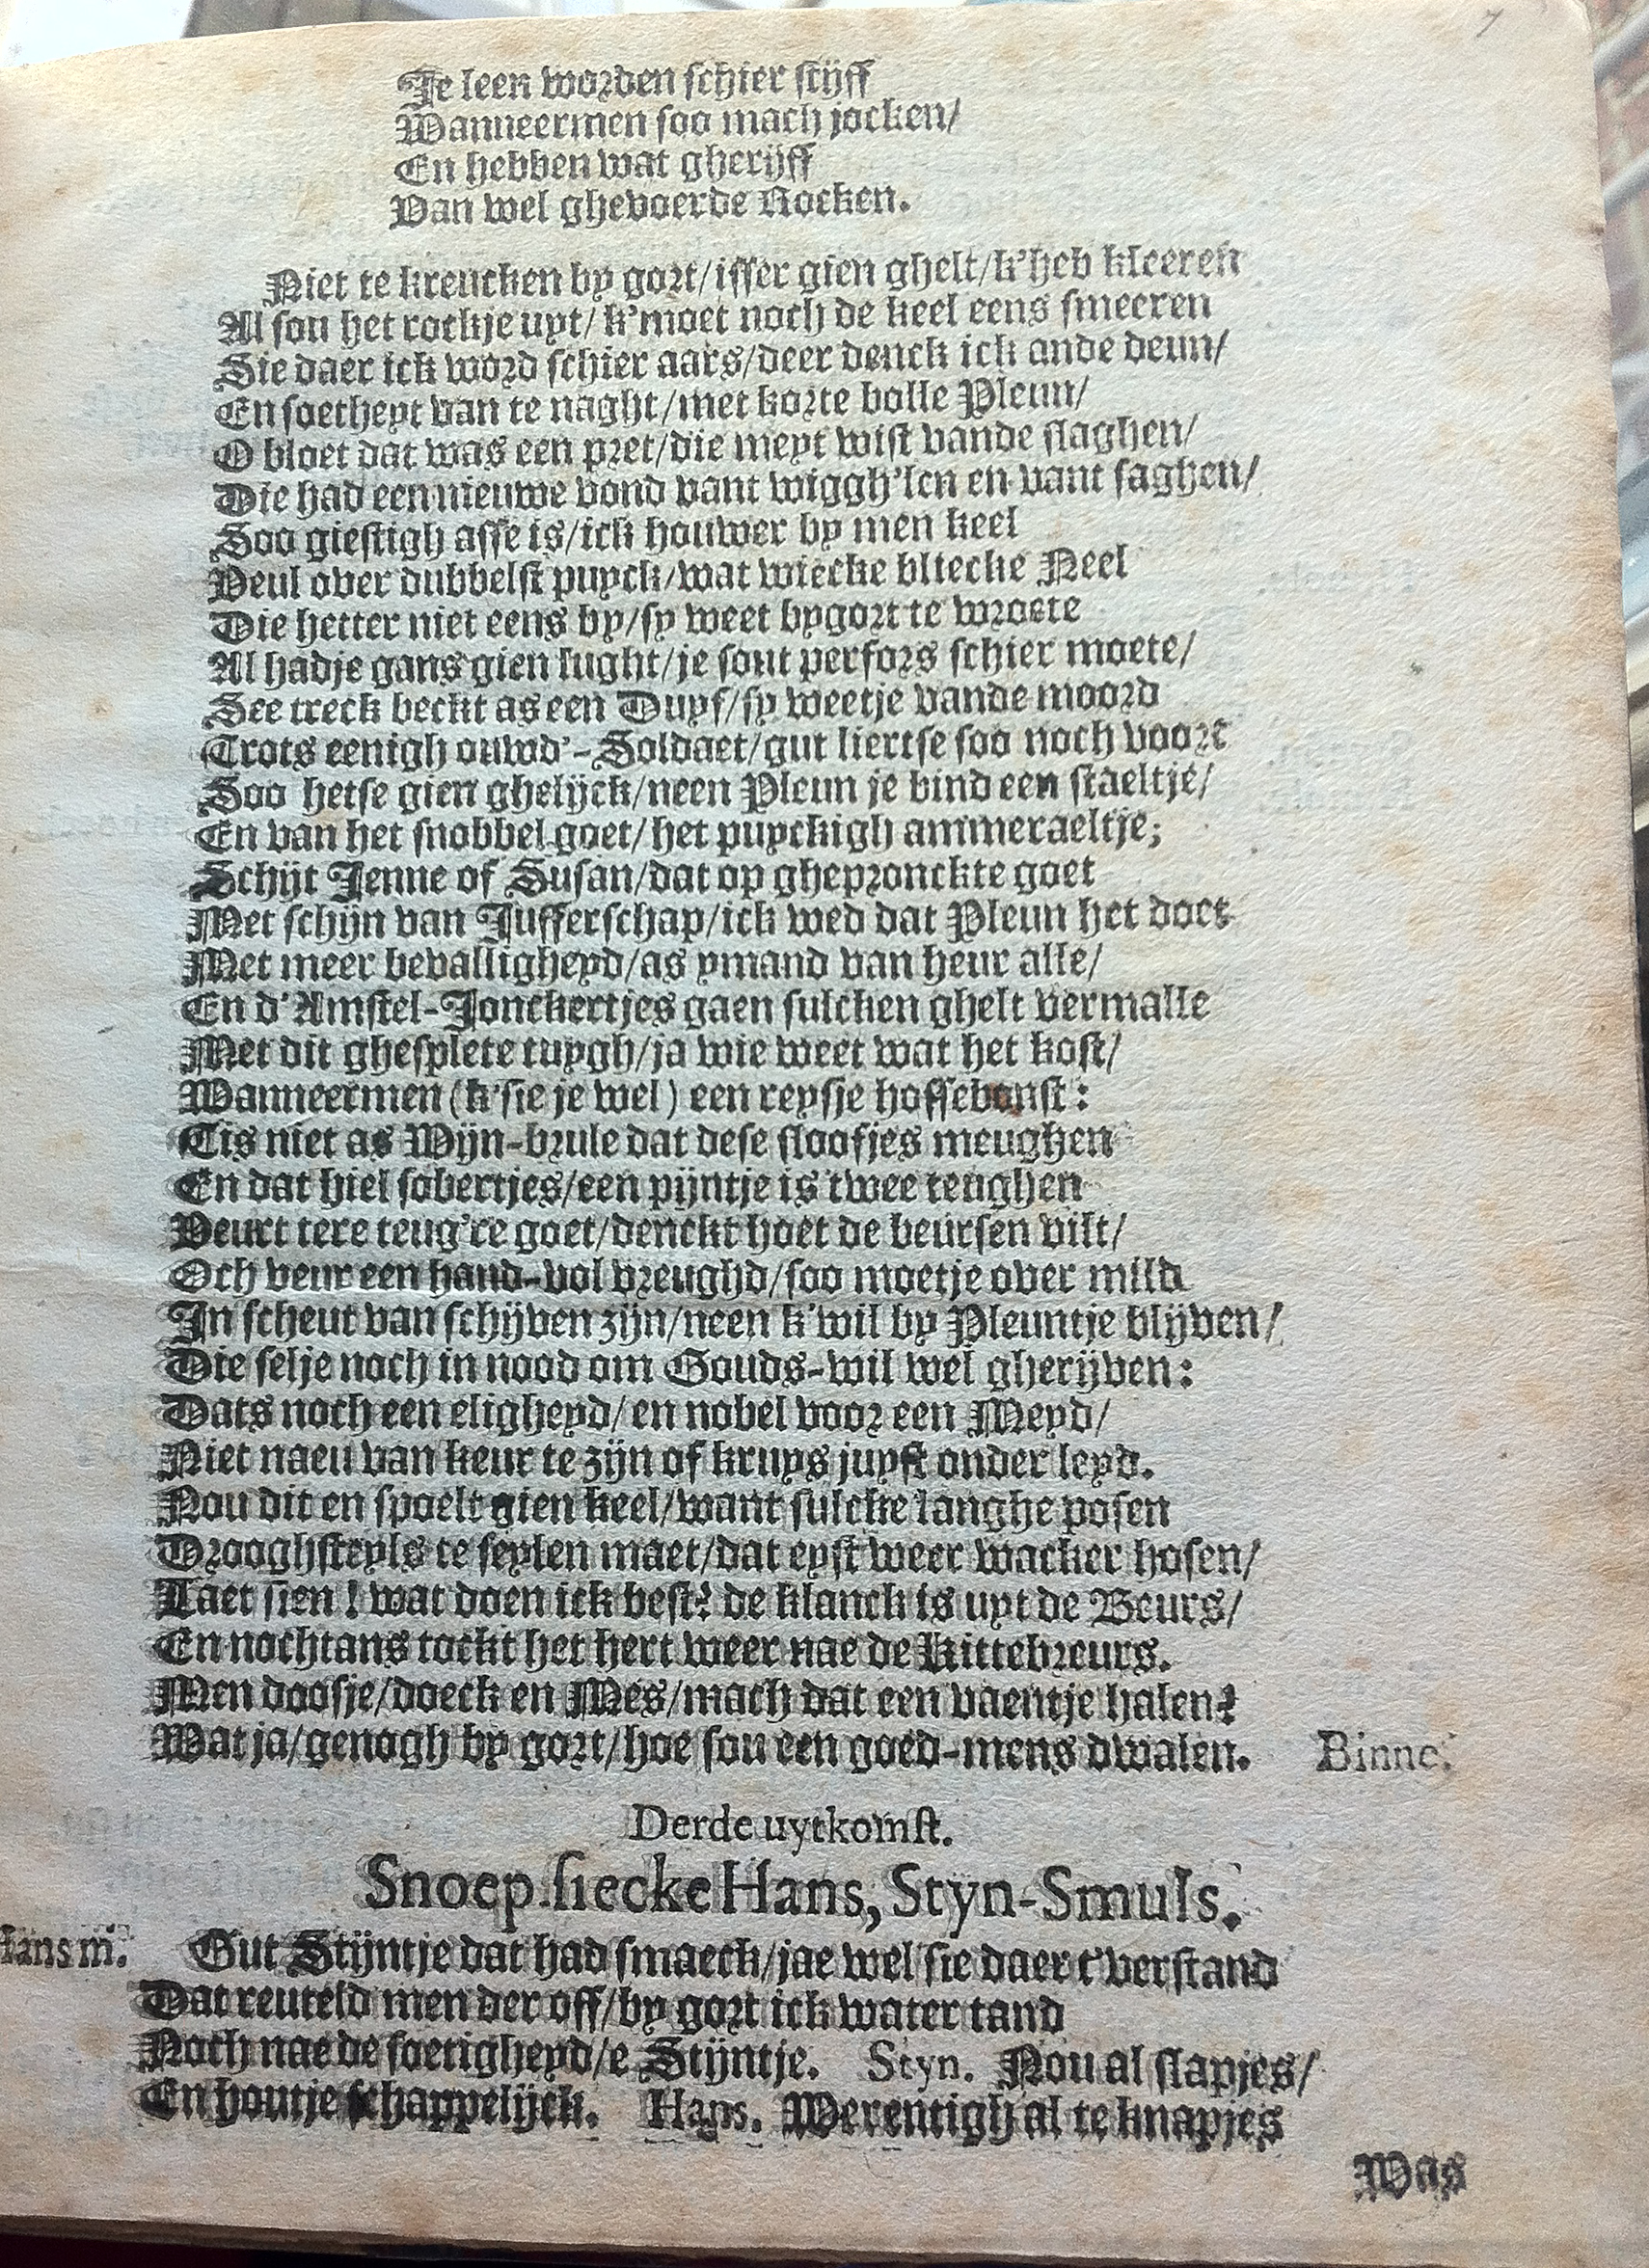 7
Je leen worden schier stijff
Wanneermen soo mach jocken/
En hebben wat gherijff
Van wel ghevoerde Rocken.
Niet te kreucken by gort/isser gien ghelt/k'heb kleeren
Al sou het rockje uyt/k'moet noch de keel eens smeeren
Sie daer ick word schier aars/deer denck ick ande deun/
En soetheyt van te naght/met korte bolle Pleun/
O bloet dat was een pret/die meyt wist vande slaghen/
Die had een nieuwe vond vant wiggh'len en vant saghen/
Soo giestigh asse is/ick houwer by men keel
Veul over dubbelst puyck/wat wiecke bliecke Neel
Die hetter niet eens by/sy weet bygort te wroete
Al hadje gans gien lught/je sout perfors schier moete/
See treck beckt as een Duyf/sy weetje vande moord
Trots eenigh ouwd'-Soldaet/gut liertse soo noch voort
Soo hetse gien ghelijck/neen Pleun je bind een staeltje/
En van het snobbel goet/het puyckigh ammeraeltje;
Schijt Jenne of Susan/dat op ghepronckte goet
Met schijn van Jufferschap/ick wed dat Pleun het doet
Met meer bevalligheyd/as ymand van heur alle/
En d'Amstel-Jonckertjes gaen sulcken ghelt vermalle
Met dit ghesplete tuygh/ja wie weet wat het kost/
Wanneermen (k'sie je wel) een reysje hossebonst:
Tis niet as Wijn-brule dat dese sloofjes meughen
En dat hiel sobertjes/een pijntje is twee teughen
Veurt tere teug're goet/denckt hoet de beursen vilt/
Och veur een hand-vol vreughd/soo moetje over mild
In scheut van schijven zijn/neen k'wil by Pleuntje blijven/
Die selje noch in nood om Gouds-wil wel gherijven:
Dats noch een eligheyd/en nobel voor een Meyd/
Niet naeu van keur te zijn of kruys juyst onder leyd.
Nou dit en spoelt gien keel/want sulcke langhe posen
Drooghsteyls te seylen maet/dat eyst weer wacker hosen/
Laet sien! wat doen ick best? de klanck is uyt de Beurs/
En nochtans tockt het hert weer nae de Kittebreurs.
Men doosje/doeck en Mes/mach dat een vaentje halen?
Wat ja/genogh by gort/hoe sou een goed-mens dwalen. Binne.
Derde uytkomst.
Snoep-siecke Hans, Styn-Smuls.
Hans m. Gut Stijntje dat had smaeck/jae wel sie daer t'verstand
Dat reuteld men der off/by gort ick water tand
Noch nae de soetigheyd/e Stijntje. Styn. Nou al slapjes/
En houtje schappelijck. Hans. Werentigh al te knapjes
Was